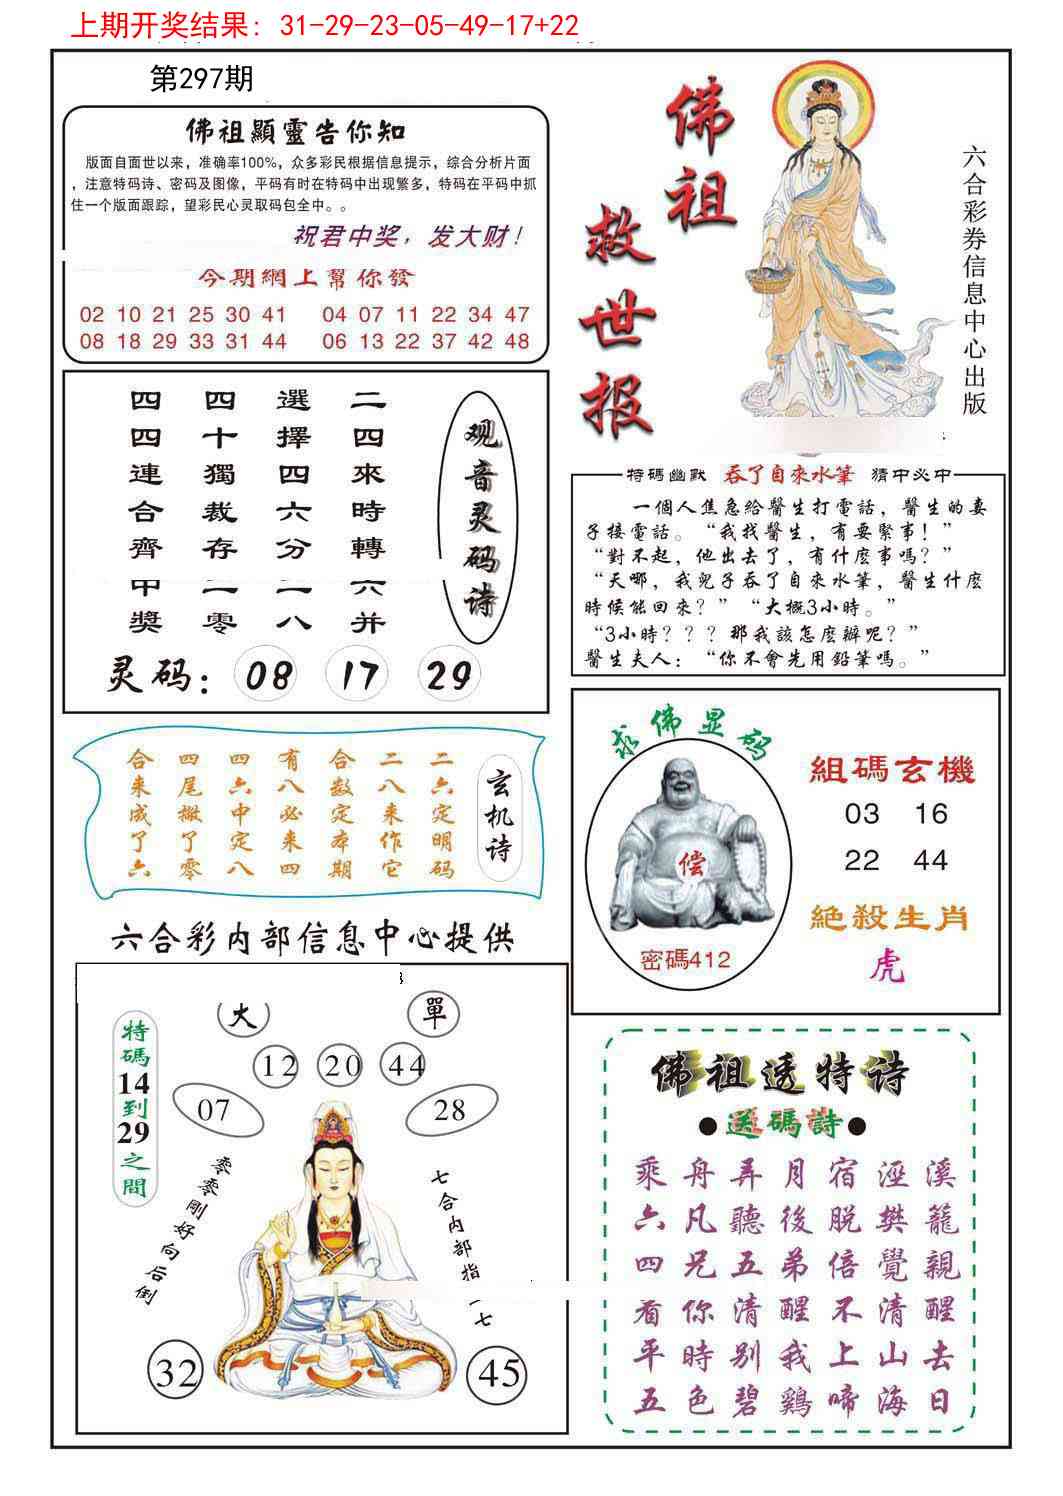 上期开奖结果: 31-29-23-05-49-17+22
第297期
佛祖顯靈告你知
版面自面世以来，准确率100%，众多彩民根据信息提示，综合分析片面
，注意特码诗、密码及图像，平码有时在特码中出现繁多，特码在平码中抓
住一个版面跟踪，望彩民心灵取码包全中。。
祝君中奖，发大财！
今期網上幫你發
02 10 21 25 30 41 04 07 11 22 34 47
08 18 29 33 31 44 06 13 22 37 42 48
佛祖
救世报
六合彩券信息中心出版
观音灵码诗
二四來時轉六并
選擇四六分二一八
四十獨裁存一零
四四連合齊中獎
灵码：08 17 29
特碼幽默 吞了自來水筆 猜中必中
一個人焦急給醫生打電話，醫生的妻
子接電話。“我找醫生，有要緊事！”
“對不起，他出去了，有什麽事嗎？”
“天哪，我兒子吞了自來水筆，醫生什麽
時候能回來？”“大概3小時。”
“3小時？？？那我該怎麽辦呢？”
醫生夫人：“你不會先用鉛筆嗎。”
玄机诗
二六定明码
二八来作它
合数定本期
有八必来四
四六中定八
四尾撒了零
合来成了六
求佛显码
偿
密碼412
組碼玄機
03 16
22 44
絕殺生肖
虎
六合彩内部信息中心提供
大 單
特碼14到29之間
12 20 44
07 28
零零剛好向后倒
七合内部指 七
32 45
佛祖透特诗
●送碼詩●
乘舟弄月宿涇溪
六凡聽後脱樊籠
四兄五弟倍覺親
看你清醒不清醒
平時别我上山去
五色碧鷄啼海日